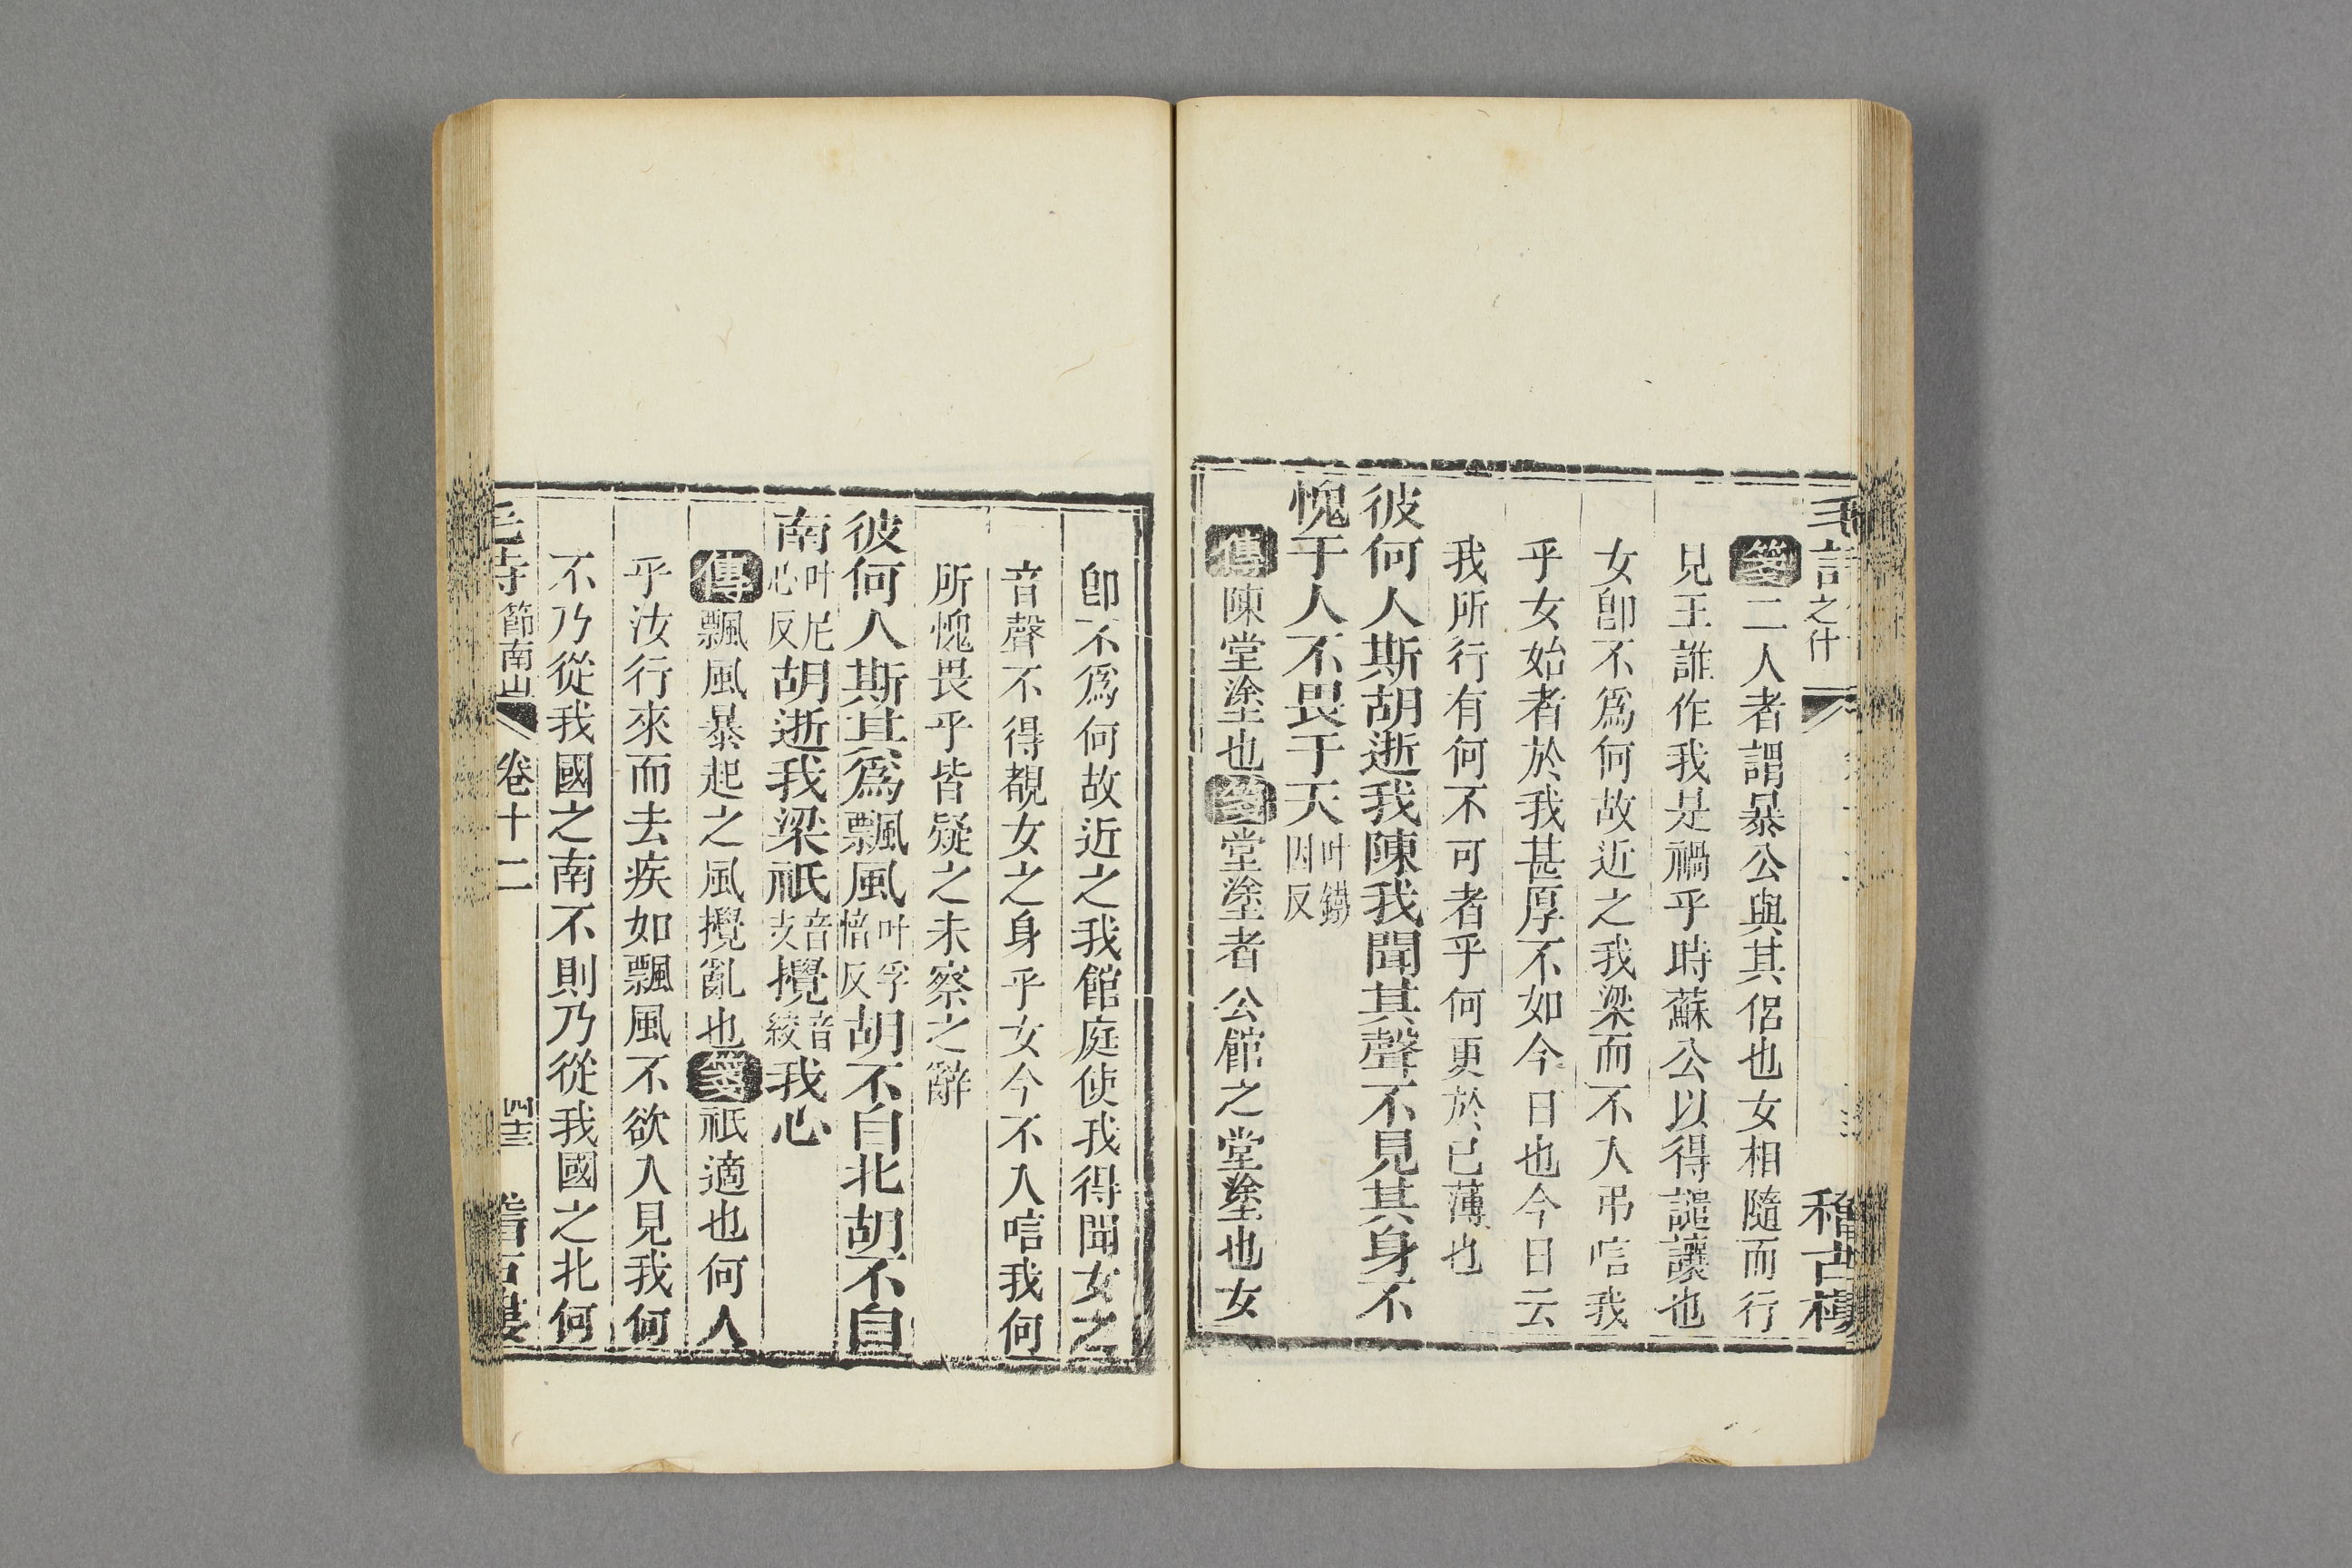 箋二人者謂暴公與其侶也女相隨而行
見王誰作我是禍乎時蘇公以得譴讓也
女卽不爲何故近之我梁而不入弔唁我
乎女始者於我甚厚不如今日也今日云
我所行有何不可者乎何更於已薄也
彼何人斯胡逝我陳我聞其聲不見其身不
愧于人不畏于天叶鐵因反
傳陳堂塗也箋堂塗者公館之堂塗也女
卽不爲何故近之我館庭使我得聞女之
音聲不得覩女之身乎女今不入唁我何
所愧畏乎皆疑之未察之辭
彼何人斯其爲飄風叶孚愔反胡不自北胡不自
南叶尼心反胡逝我梁祇音支攪音絞我心
傳飄風暴起之風攪亂也箋祇適也何人
乎汝行來而去疾如飄風不欲入見我何
不乃從我國之南不則乃從我國之北何
毛詩節南山 卷十二 四十三